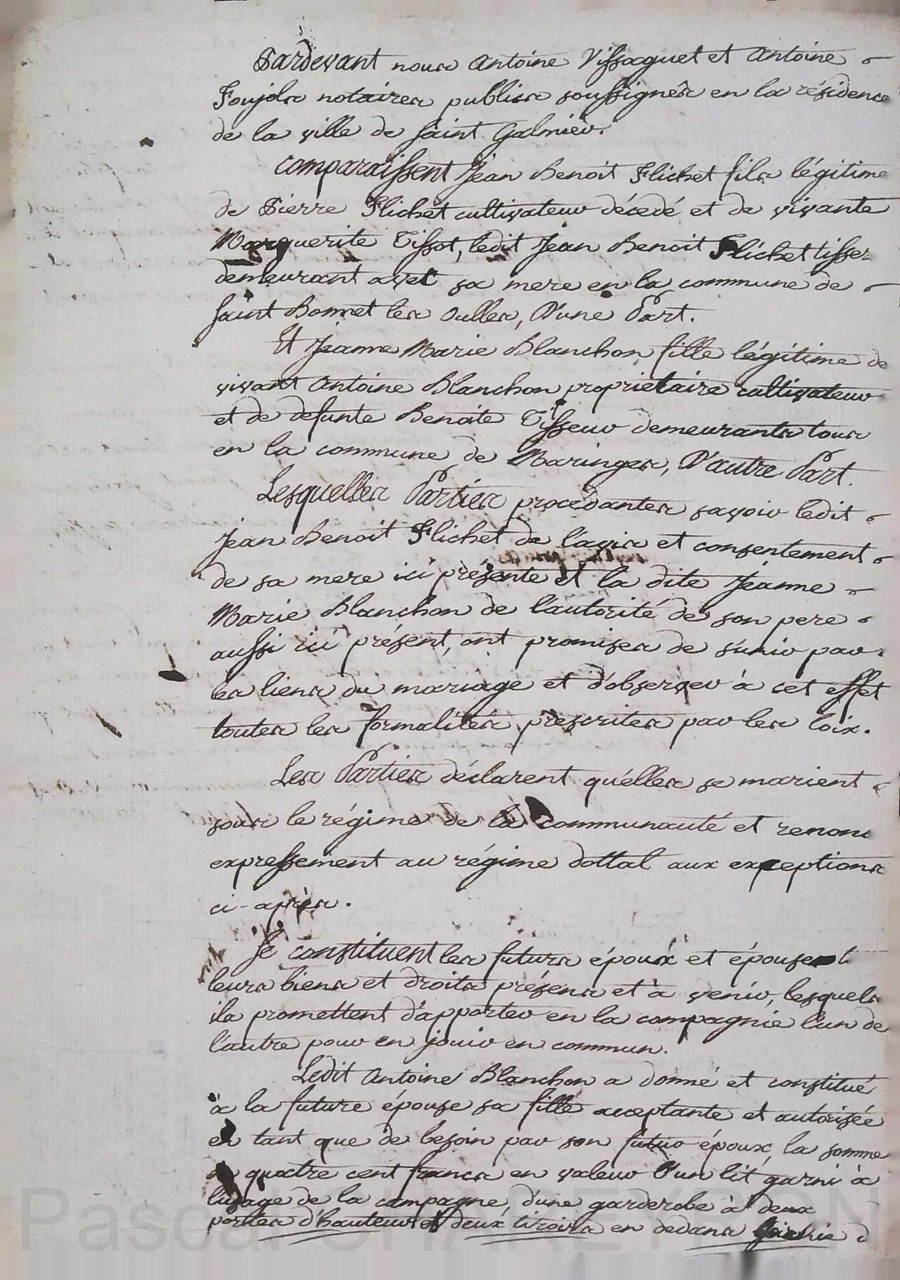 Pardevant nous Antoine Vissaguet et Antoine
Foujols notaires publics soussignés en la résidence
de la ville de Saint Galmier.
Comparaissent Jean Benoit Flichet fils légitime
de Pierre Flichet cultivateur décédé et de vivante
Marguerite Tissot, ledit Jean Benoit Flichet tisser
demeurant avec sa mere en la commune de
Saint Bonnet les Oulles, D'une Part.
Et Jeanne Marie Blanchon fille légitime de
vivant Antoine Blanchon propriétaire cultivateur
et de defunte Benoite Tisseur demeurants tous
en la commune de Maringes, D'autre Part.
Lesquelles Parties procédantes savoir ledit
Jean Benoit Flichet de l'avis et consentement
de sa mere ici présente et la dite Jeanne
Marie Blanchon de l'autorité de son pere
aussi ici présent, ont promises de s'unir par
les liens du mariage et d'observer à cet effet
toutes les formalités préscrites par les Loix.
Les Parties déclarent qu'elles se marient
sous le régime de la communauté et renonc
expressement au régime dottal aux exceptions
ci-après.
Se constituent les futurs époux et épouse
leurs biens et droits présens et à venir, lesquels
ils promettent d'apporter en la compagnie l'un de
l'autre pour en jouir en commun.
Ledit Antoine Blanchon a donné et constitué
à la future épouse sa fille acceptante et autorisée
en tant que de besoin par son futur époux la somme
de quatre cent francs en valeur D'un lit garni à
l'usage de la campagne, d'une garderobe à deux
portes d'hauteur et deux tiroirs en dedans
Pascal CHAREYRON